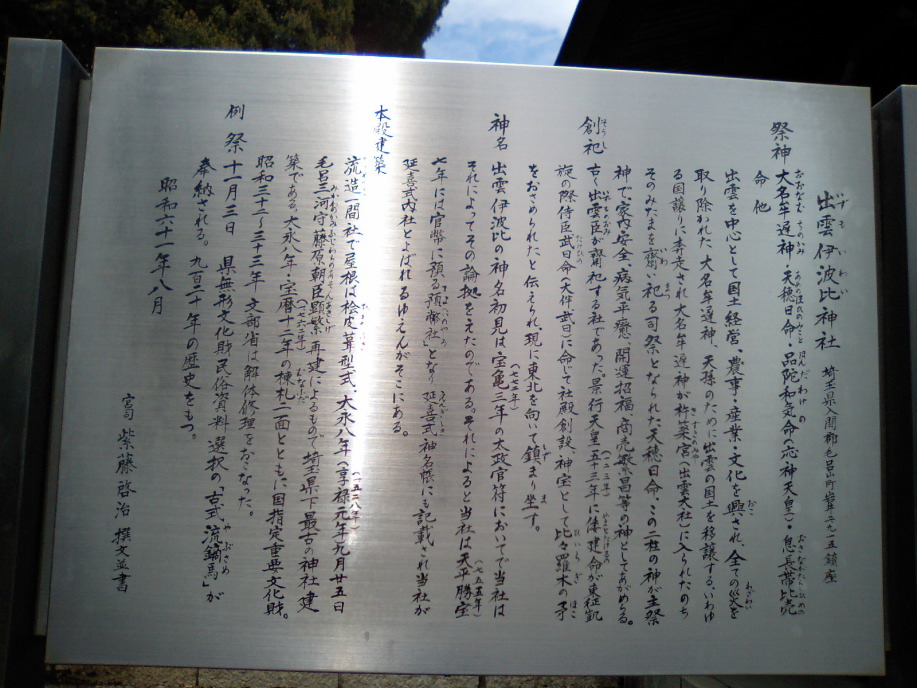 出雲伊波比神社 埼玉県入間郡毛呂山町岩井二九一五鎮座
祭神 大名牟遅神 天穂日命 品陀和気命の応神天皇)・息長帯比売
命 他
出雲を中心として国土経営、農事・産業・文化を興され、全ての災を
取り除かれた、大名牟遅神、天孫のために出雲の国土を移譲する、いわゆ
る国譲りに奔走され大名牟遅神が杵築宮(出雲大社)に入られたのち
そのみたまを齋い祀る司祭となられた天穂日命、この二柱の神が主祭
神で、家内安全、病気平癒、開運招福、商売繁昌等の神としてあがめらる。
創祀 古く出雲臣が齋祀する社であった。景行天皇五十三年に倭建命が東征凱
旋の際侍臣武日命(大伴武日)に命じて社殿創設、神宝として比々羅木の矛
をおさめられたと伝えられ、現に東北を向いて鎮まり坐す。
神名 出雲伊波比の神名初見は宝亀三年(七七二年)の太政官符においてで当社は
それによってその論拠をえたのである。それによると当社は天平勝宝
七年(七五五年)には官幣に預る預幣社となり延喜式神名帳にも記載され当社が
延喜式内社とよばれるゆえんがそこにある。
本殿建築
流造一間社で屋根は桧皮葺型式、大永八年(一五二八年)(享禄元年九月廿五日
毛呂三河守藤原朝臣顕繁再建によるもので埼玉県下最古の神社建
築である。大永八年・宝暦十二年(一七六二年)の棟札二面とともに国指定重要文化財。
昭和三十二〜三十三年、文部省は解体修理をおこなった。
例祭 十一月三日 県無形文化財民俗資料選択の「古式流鏑馬」が
奉納される。九百二十年の歴史をもつ。
昭和六十一年八月
宮司 紫藤啓治 撰文並書